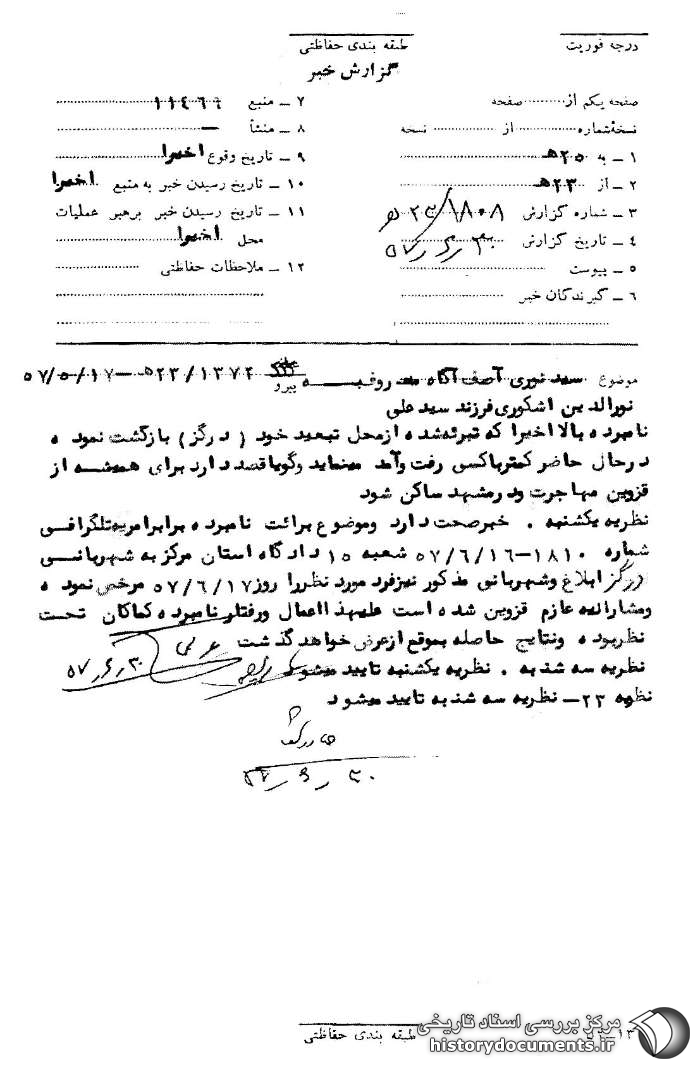 درجه فوریت
طبقه بندی حفاظتی
گزارش خبر
صفحه یکم از........... صفحه
نسخهٔ شماره............ از ............ نسخه
۱ ـ به ۲۰هـ
۲ ـ از ۲۳هـ
۳ ـ شماره گزارش ۲۳/۱۸۰۸هـ
۴ ـ تاریخ گزارش ۳۰ر۶ر۵۷
۵ ـ پیوست
۶ ـ گیرندگان خبر
۷ ـ منبع ۱۱۴۶۶
۸ ـ منشأ ـ
۹ ـ تاریخ وقوع اخیرا
۱۰ ـ تاریخ رسیدن خبر به منبع اخیرا
۱۱ ـ تاریخ رسیدن خبر برهبر عملیات
محل اخیرا
۱۲ ـ ملاحظات حفاظتی
موضوع سید نوری آصف آگاه معروف به
پیرو ۲۳/۱۳۷۲هـ ـ ۵۷/۵/۱۷
نورالدین اشکوری فرزند سید علی
نامبرده بالا اخیرا که تبرئه شده از محل تبعید خود (درگز) بازگشت نموده
درحال حاضر کمتر باکسی رفت وآمد مینماید وگویا قصد دارد برای همیشه از
قزوین مهاجرت ودرمشهد ساکن شود
نظریه یکشنبه . خبرصحت دارد وموضوع برائت نامبرده برابر امریه تلگرافی
شماره ۱۸۱۰ـ۵۷/۶/۱۶ شعبه ۱۵ دادگاه استان مرکز به شهربانی
درگز ابلاغ وشهربانی مذکور نیزفرد مورد نظررا روز ۵۷/۶/۱۷ مرخص نموده
ومشارالیه عازم قزوین شده است علیهذا اعمال ورفتار نامبرده کماکان تحت
نظربوده ونتایج حاصله بموقع ازعرض خواهد گذشت
نظریه سه شنبه . نظریه یکشنبه تایید میشود
۳۰ر۶ر۵۷
نظریه ۲۳ـ نظریه سه شنبه تایید میشود
۳۰ر۶ر۵۷
طبقه بندی حفاظتی
مرکز بررسی اسناد تاریخی
historydocuments.ir